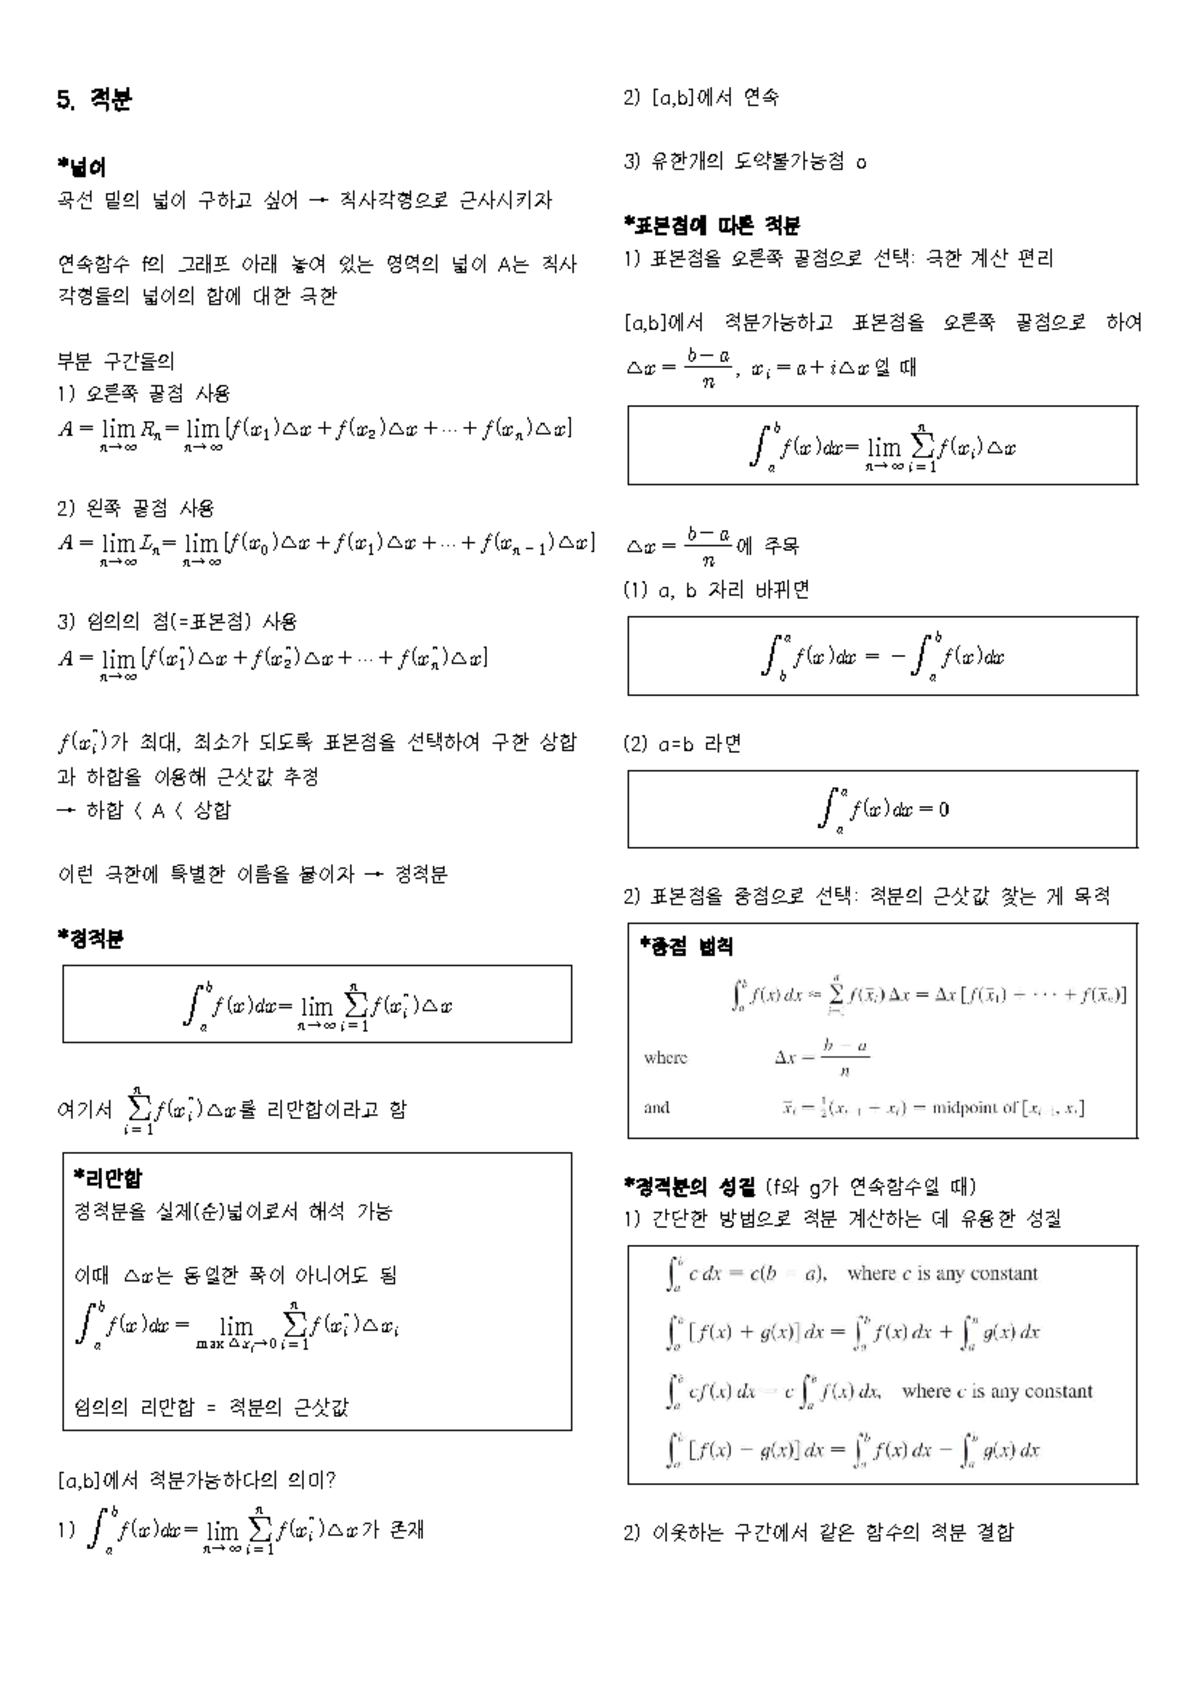 5. 적분
*넓이
곡선 밑의 넓이 구하고 싶어 → 직사각형으로 근사시키자
연속함수 f의 그래프 아래 놓여 있는 영역의 넓이 A는 직사
각형들의 넓이의 합에 대한 극한
부분 구간들의
1) 오른쪽 끝점 사용
A = lim_{n→∞} R_n = lim_{n→∞} [f(x_1)△x + f(x_2)△x + ⋯ + f(x_n)△x]
2) 왼쪽 끝점 사용
A = lim_{n→∞} L_n = lim_{n→∞} [f(x_0)△x + f(x_1)△x + ⋯ + f(x_{n-1})△x]
3) 임의의 점(=표본점) 사용
A = lim_{n→∞} [f(x_1^*)△x + f(x_2^*)△x + ⋯ + f(x_n^*)△x]
f(x_i^*)가 최대, 최소가 되도록 표본점을 선택하여 구한 상합
과 하합을 이용해 근삿값 추정
→ 하합 < A < 상합
이런 극한에 특별한 이름을 붙이자 → 정적분
*정적분
∫_a^b f(x)dx = lim_{n→∞} ∑_{i=1}^n f(x_i^*)△x
여기서 ∑_{i=1}^n f(x_i^*)△x를 리만합이라고 함
*리만합
정적분을 실제(순)넓이로서 해석 가능
이때 △x는 동일한 폭이 아니어도 됨
∫_a^b f(x)dx = lim_{max △x_i→0} ∑_{i=1}^n f(x_i^*)△x_i
임의의 리만합 = 적분의 근삿값
[a,b]에서 적분가능하다의 의미?
1) ∫_a^b f(x)dx = lim_{n→∞} ∑_{i=1}^n f(x_i^*)△x가 존재
2) [a,b]에서 연속
3) 유한개의 도약불가능점 o
*표본점에 따른 적분
1) 표본점을 오른쪽 끝점으로 선택: 극한 계산 편리
[a,b]에서 적분가능하고 표본점을 오른쪽 끝점으로 하여
△x = (b-a)/n, x_i = a + i△x일 때
∫_a^b f(x)dx = lim_{n→∞} ∑_{i=1}^n f(x_i)△x
△x = (b-a)/n에 주목
(1) a, b 자리 바뀌면
∫_b^a f(x)dx = -∫_a^b f(x)dx
(2) a=b 라면
∫_a^a f(x)dx = 0
2) 표본점을 중점으로 선택: 적분의 근삿값 찾는 게 목적
*중점 법칙
∫_a^b f(x) dx ≈ ∑_{i=1}^n f(x̄_i) Δx = Δx [f(x̄_1) + ⋯ + f(x̄_n)]
where Δx = (b - a)/n
and x̄_i = ½(x_{i-1} + x_i) = midpoint of [x_{i-1}, x_i]
*정적분의 성질 (f와 g가 연속함수일 때)
1) 간단한 방법으로 적분 계산하는 데 유용한 성질
∫_a^b c dx = c(b - a), where c is any constant
∫_a^b [f(x) + g(x)] dx = ∫_a^b f(x) dx + ∫_a^b g(x) dx
∫_a^b cf(x) dx = c ∫_a^b f(x) dx, where c is any constant
∫_a^b [f(x) - g(x)] dx = ∫_a^b f(x) dx - ∫_a^b g(x) dx
2) 이웃하는 구간에서 같은 함수의 적분 결합